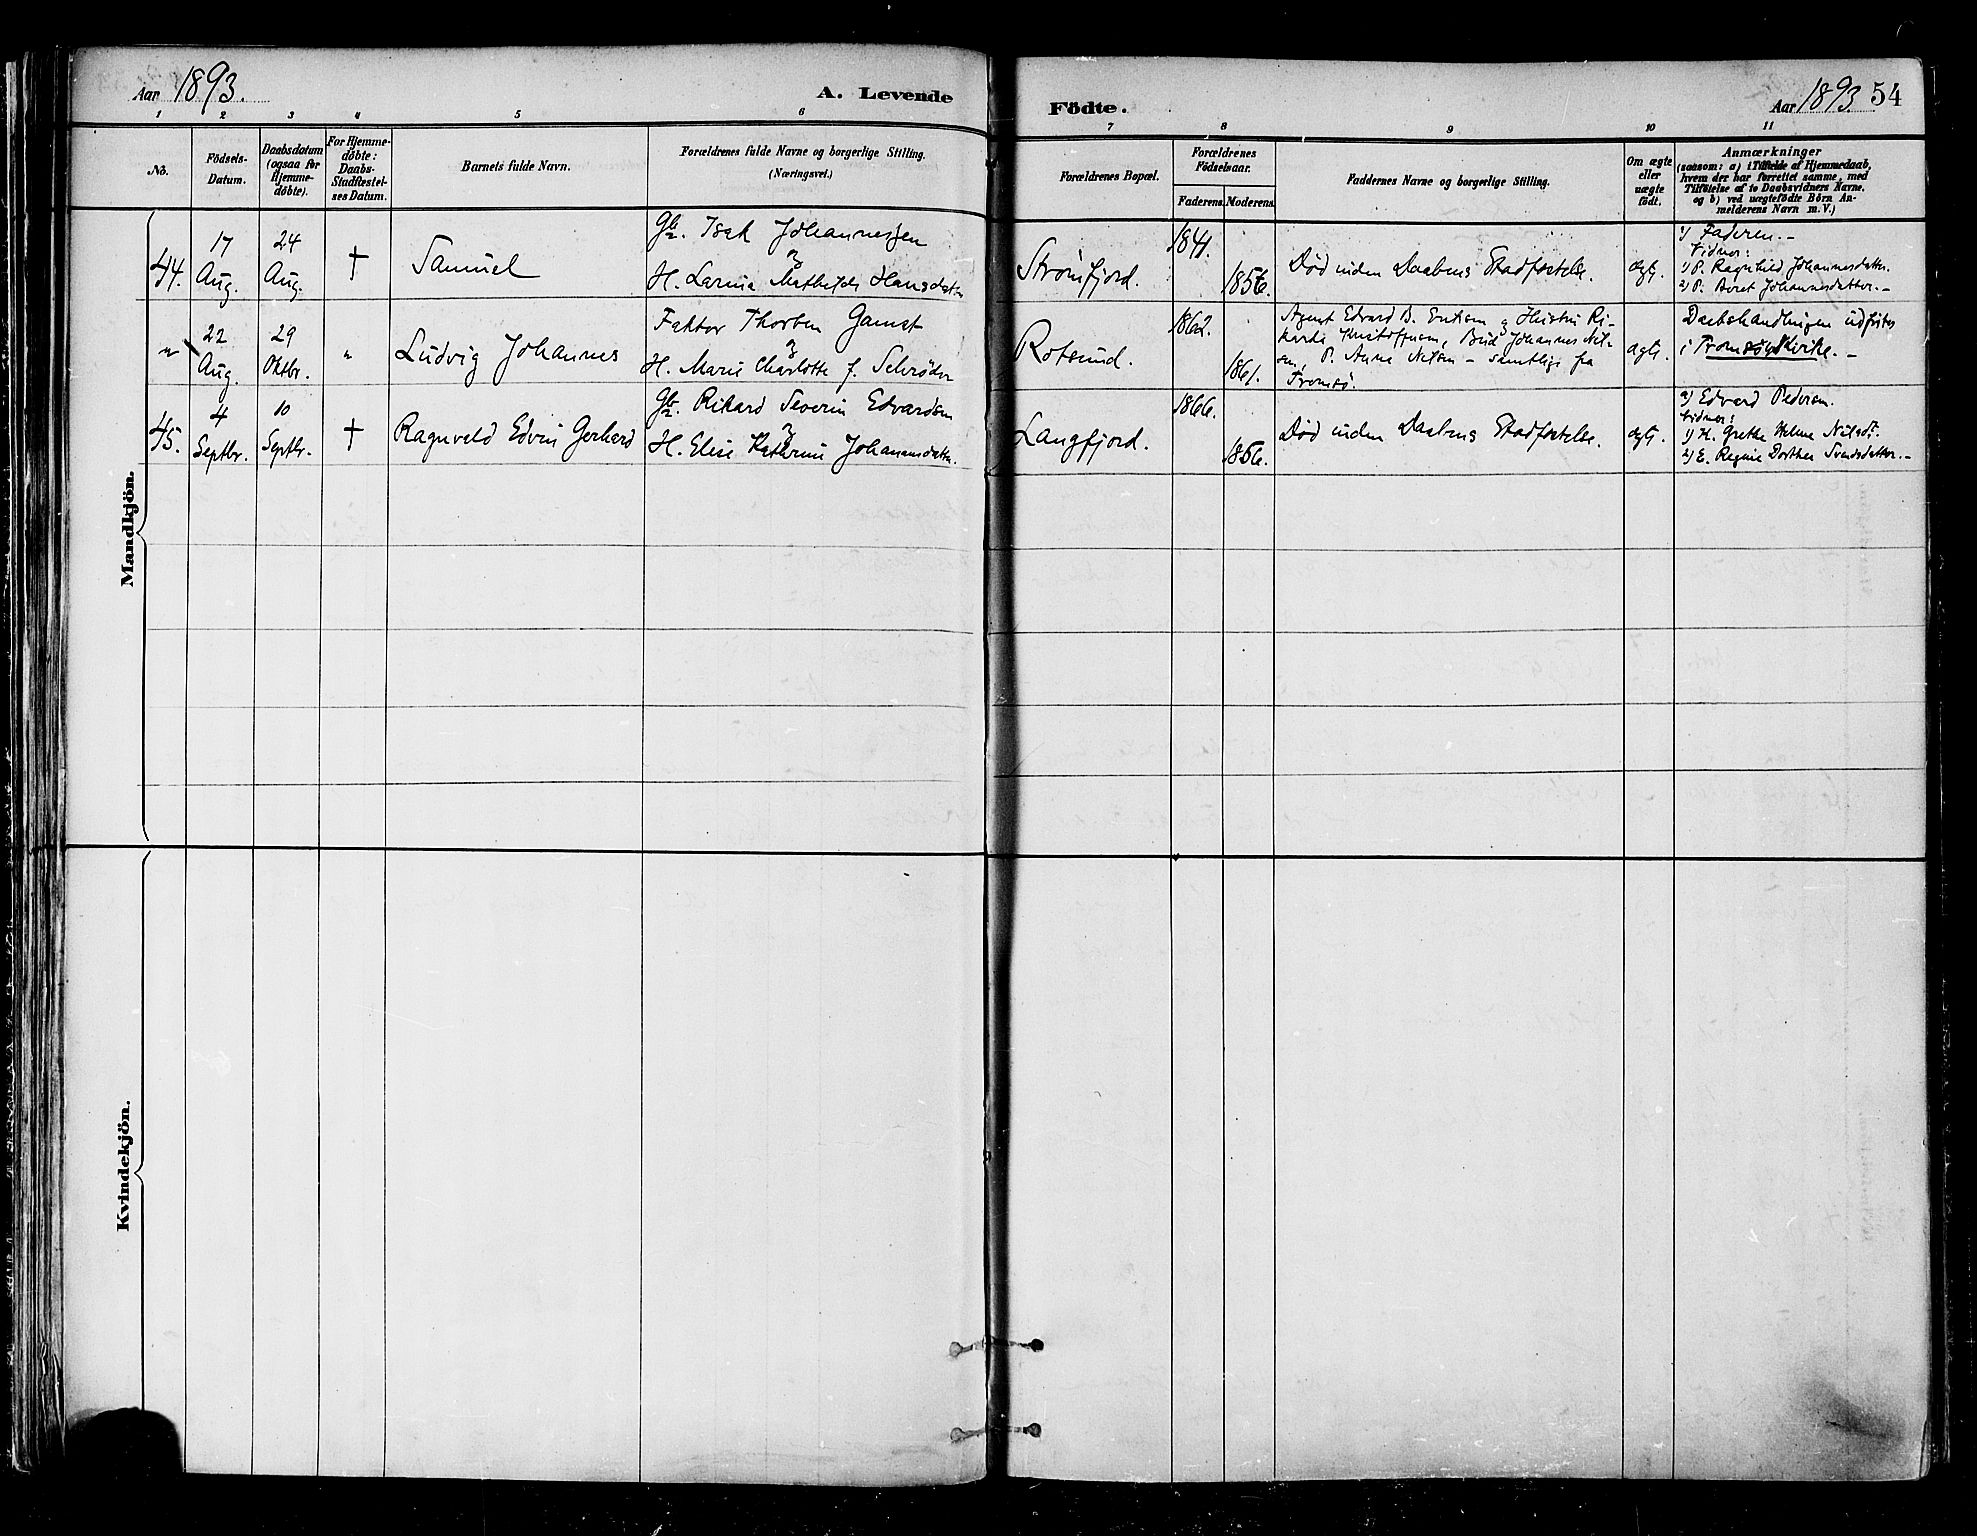 Aar 1893.
A. Levende
Födte.
Aar 1893. 54
1 2 3 4 5 6 7 8 9 10 11
No.
Födsels-
Datum.
Daabsdatum
(ogsaa for
Hjemme-
döbte).
For Hjemme-
döbte:
Daabs-
Stadfæstel-
ses Datum.
Barnets fulde Navn.
Forældrenes fulde Navne og borgerlige Stilling.
(Næringsvei.)
Forældrenes Bopæl.
Forældrenes
Födselsaar.
Faderens. Moderens.
Faddernes Navne og borgerlige Stilling.
Om ægte
eller
uægte
födt.
Anmærkninger
(saasom: a) i Tilfælde af Hjemmedaab,
hvem der har forrettet samme, med
Tilföielse af to Daabsvidners Navne.
og b) ved uægtefödte Börn An-
melderens Navn m. V.)
Mandkjön.
44.
17
Aug.
24
Aug.
†
Samuel
Gbr. Isak Johannessen
og
H. Larina Mathilde Hansdatter
Strømfjord.
1841.
1856.
Død inden Daabens Stadfestelse.
ægt.
1) Faderen.-
Vidner:
1) P. Ragnhild Johannesdatter.
2) P. Beret Johannesdatter.-
"
22
Aug.
29
Oktbr.
"
Ludvig Johannes
Faktor Thorben Gamst
og
H. Marie Charlotte f. Schrøder
Rotsund.
1862.
1861.
Agent Edvard B. og Hustru Ri-
Johannes Nil-
sen, P. Anna Nilsen - samtlige fra
Tromsø.
ægt.
Daabshandlingen udført
i Tromsø Kirke.-
45.
4
Septbr.
10
Septbr.
†
Ragnvald Edvin Gerhard
Gbr. Rikard Severin Edvardsen
og
H. Elise Kathrine Johannesdatter.
Langfjord.
1866.
1856.
Død inden Daabens Stadfestelse.
ægt.
a) Edvard Pedersen.
Vidner:
1) H. Grethe Helene Nilsdt.
2) E. Regine Dorthea Svendsdatter.-
Kvindekjön.